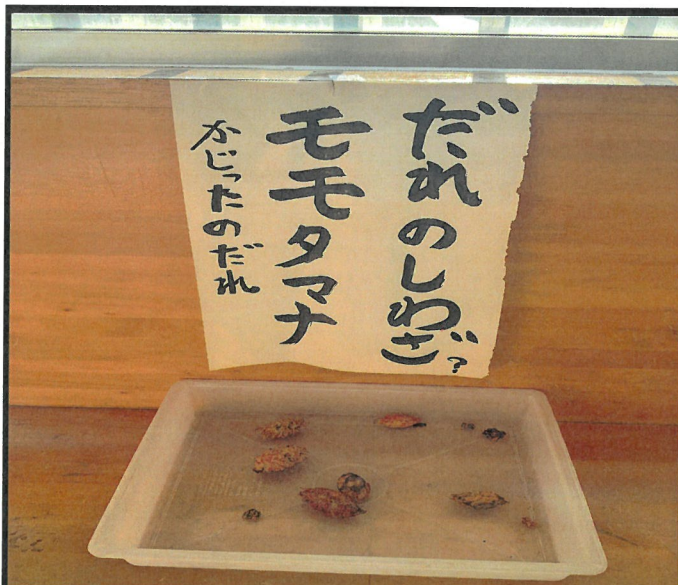 だれのしわざ?
モモタマナ
かじったのだれ